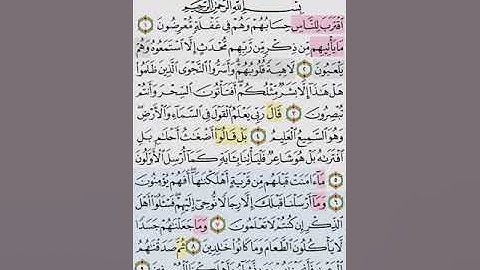 بِسْمِ اللَّهِ الرَّحْمَٰنِ الرَّحِيمِ
ٱقْتَرَبَ لِلنَّاسِ حِسَابُهُمْ وَهُمْ فِى غَفْلَةٍ مُّعْرِضُونَ ١
مَا يَأْتِيهِم مِّن ذِكْرٍ مِّن رَّبِّهِم مُّحْدَثٍ إِلَّا ٱسْتَمَعُوهُ وَهُمْ
يَلْعَبُونَ ٢ لَاهِيَةً قُلُوبُهُمْ وَأَسَرُّوا۟ ٱلنَّجْوَى ٱلَّذِينَ ظَلَمُوا۟
هَلْ هَٰذَآ إِلَّا بَشَرٌ مِّثْلُكُمْ أَفَتَأْتُونَ ٱلسِّحْرَ وَأَنتُمْ
تُبْصِرُونَ ٣ قَالَ رَبِّى يَعْلَمُ ٱلْقَوْلَ فِى ٱلسَّمَآءِ وَٱلْأَرْضِ
وَهُوَ ٱلسَّمِيعُ ٱلْعَلِيمُ ٤ بَلْ قَالُوٓا۟ أَضْغَٰثُ أَحْلَٰمٍۭ بَلِ
ٱفْتَرَىٰهُ بَلْ هُوَ شَاعِرٌ فَلْيَأْتِنَا بِـَٔايَةٍ كَمَآ أُرْسِلَ ٱلْأَوَّلُونَ
٥ مَآ ءَامَنَتْ قَبْلَهُم مِّن قَرْيَةٍ أَهْلَكْنَٰهَآ أَفَهُمْ يُؤْمِنُونَ
٦ وَمَآ أَرْسَلْنَا قَبْلَكَ إِلَّا رِجَالًا نُّوحِىٓ إِلَيْهِمْ فَسْـَٔلُوٓا۟ أَهْلَ
ٱلذِّكْرِ إِن كُنتُمْ لَا تَعْلَمُونَ ٧ وَمَا جَعَلْنَٰهُمْ جَسَدًا
لَّا يَأْكُلُونَ ٱلطَّعَامَ وَمَا كَانُوا۟ خَٰلِدِينَ ٨ ثُمَّ صَدَقْنَٰهُمُ